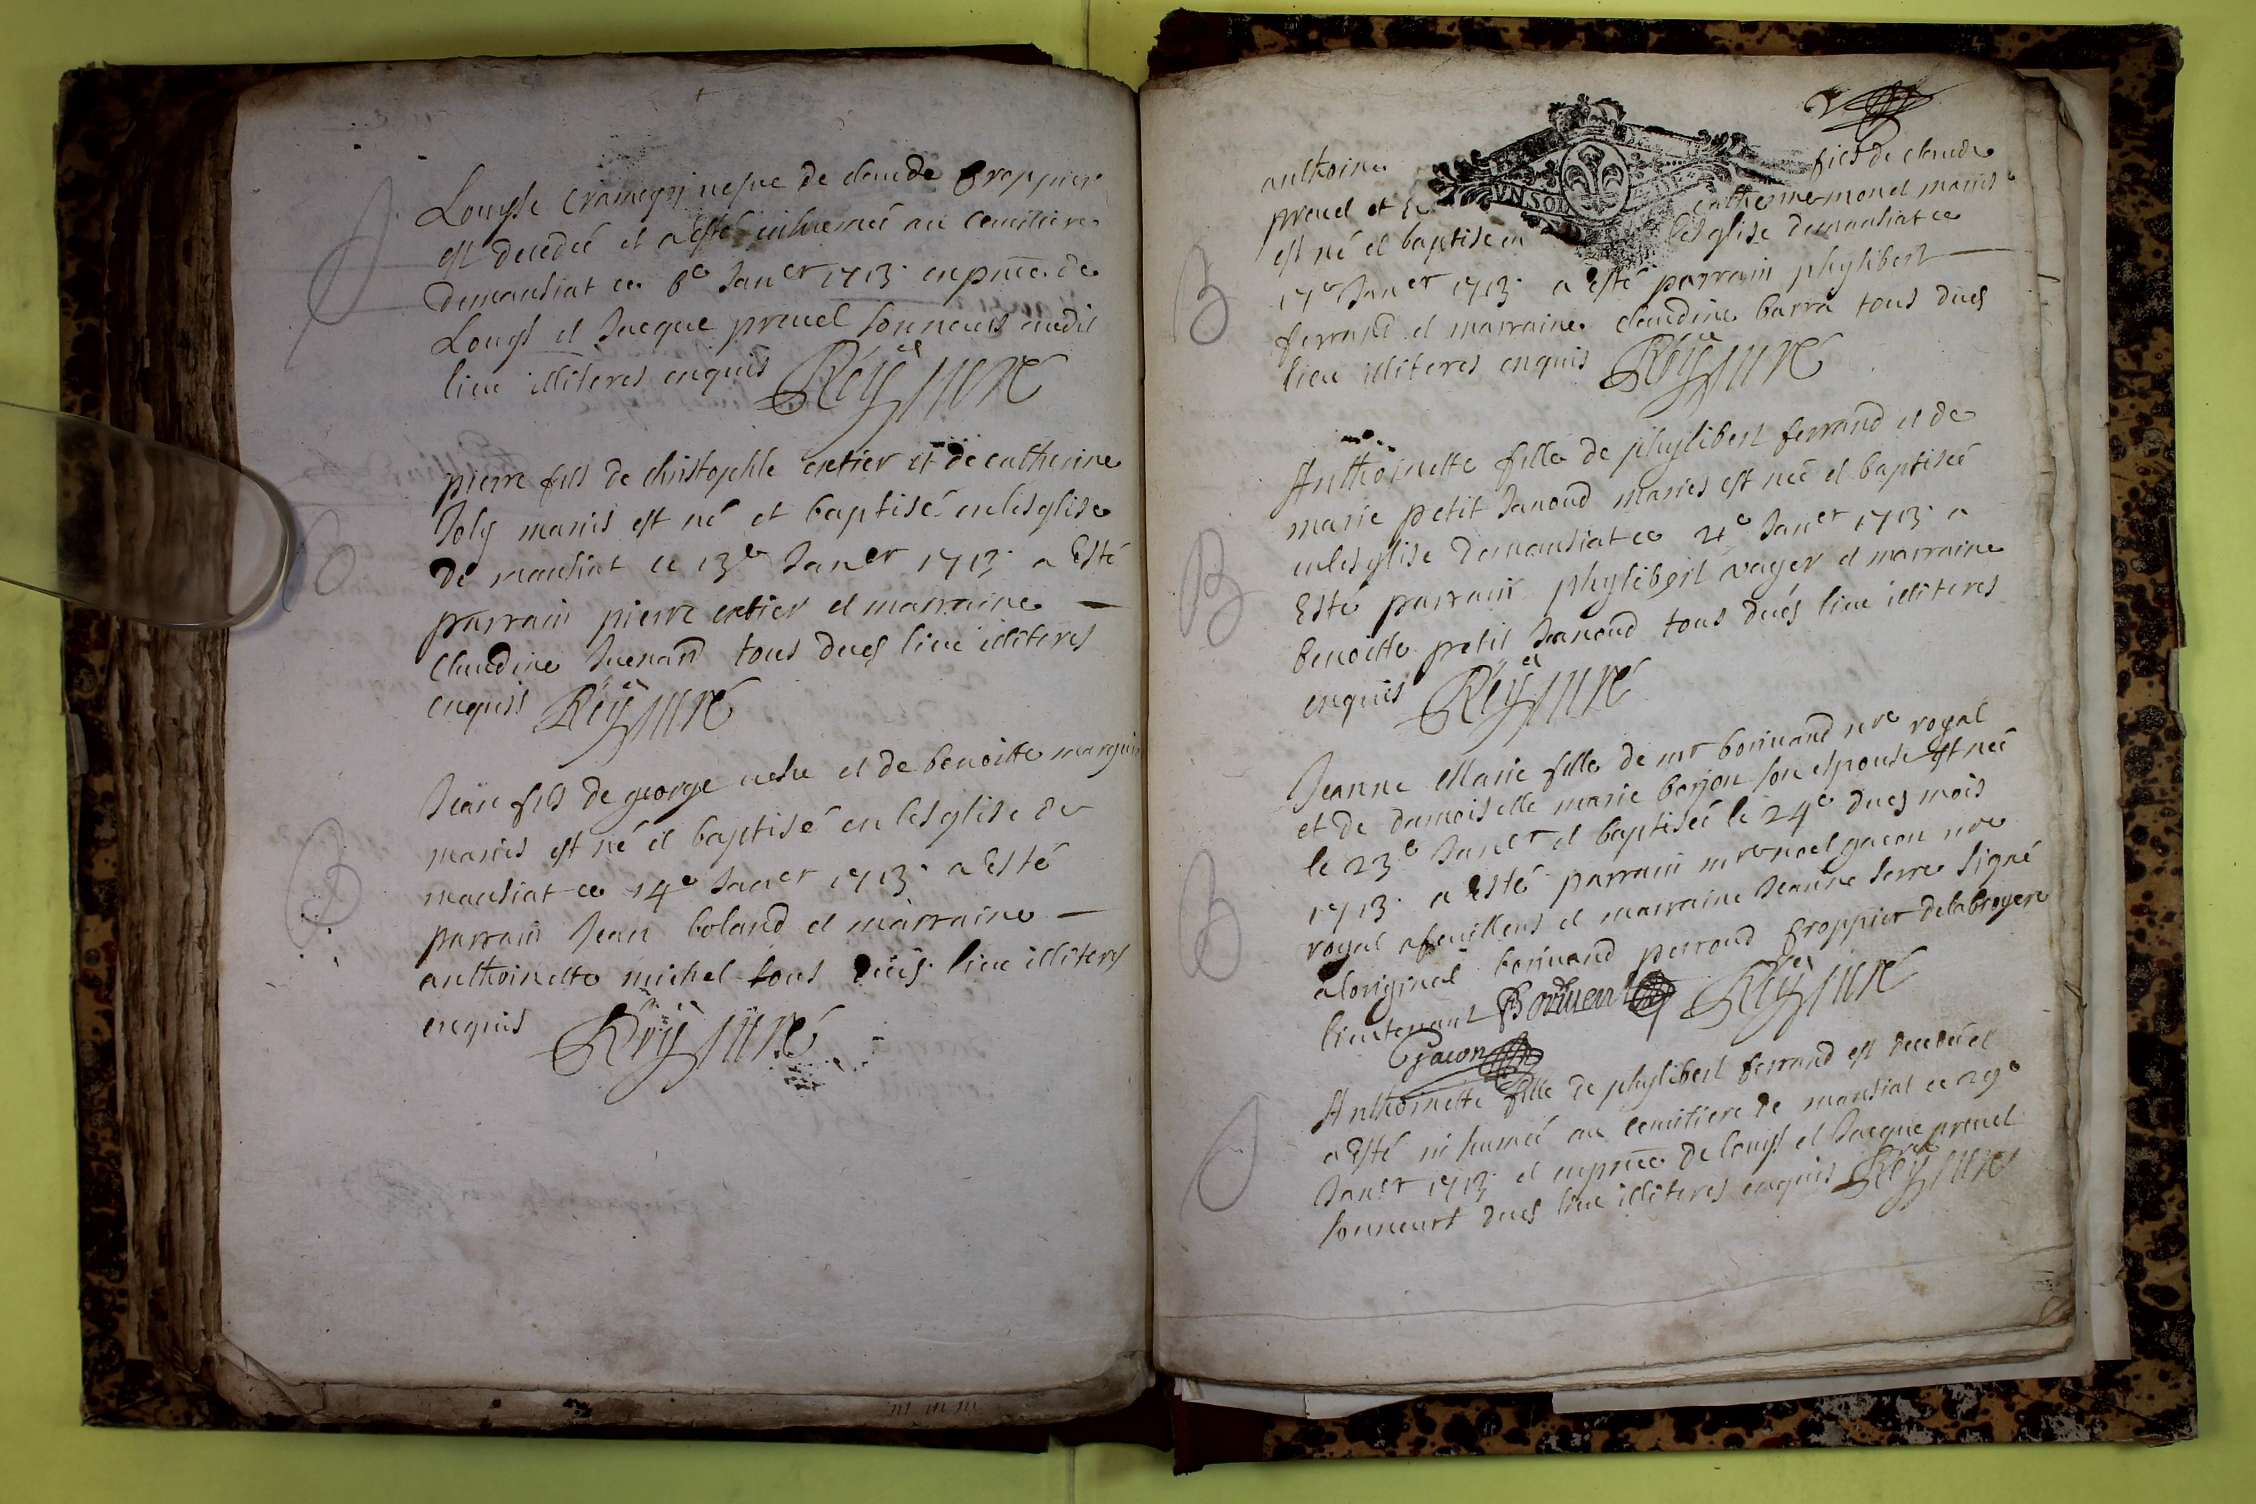 Louyse veufve de claude froppier
est decedeé et a esté inhumeé au cemitiere
demansiat ce 8e Janer 1713 enpnce de
Louys et Jacque preuel sonneurs dudit
lieu illiteres enquis Reÿ curé
pierre fils de christophle et de catherine
Joly mariés est né et baptisé enlesglise
de mansiat ce 13e Janer 1713 a Esté
parrain pierre et marraine —
claudine tous dués lieu illiteres
enquis Reÿ curé
Jean fils de george et de benoitte
mariés est né et baptisé en lesglise de
mansiat ce 14e Janer 1713 a Esté
parrain Jean boland et marraine —
anthoinette michel tous dués lieu illiteres
enquis Reÿ curé
anthoine fils de claude
preuel et catherine monel mariés
est né et baptisé en lesglise demansiat ce
VN SOL
17e Janer 1713 a esté parrain phylibert —
ferrand et marraine claudine barra tous dués
lieu illiteres enquis Reÿ curé
Anthoinette fille de phylibert ferrand et de
marie petit Janoud mariés est neé et baptiseé
enlesglise demansiat ce Janer 1713 a
Esté parrain phylibert et marraine
benoitte petit Janoud tous dués lieu illiteres
enquis Reÿ curé
Jeanne Marie fille de mr boriuand nre royal
et de damoiselle marie borjon son espouse est neé
le 23e Janer et baptiseé le 24e dues mois
1713 a Esté parrain mre noel gacon nre
royal afeuillens et marraine Jeanne serre signé
aloriginal boriuand perroud froppier delabroyere
lieutenant Boriuent Reÿ curé
Gacon
Anthoinette fille de phylibert ferrand est decedeé et
a Esté inhumeé au cemitiere de mansiat ce 29e
Janer 1713 et enpnce de louys et Jacque preuel
sonneurs dués lieu illiteres enquis Reÿ curé